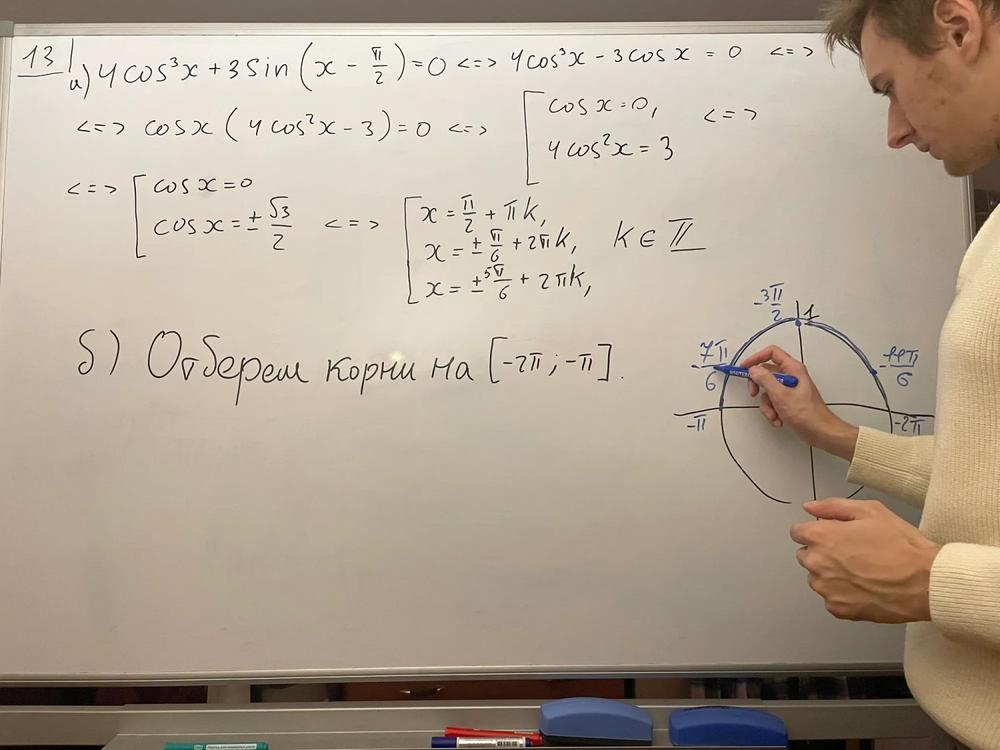 13
а) 4cos³x + 3sin(x - π/2) = 0 <=> 4cos³x - 3cosx = 0 <=>
<=> cosx(4cos²x - 3) = 0 <=> [ cosx = 0, 4cos²x = 3 <=>
<=> [ cosx = 0 cosx = ± √3/2 <=> [ x = π/2 + πk, x = ± π/6 + 2πk, x = ± 5π/6 + 2πk, k ∈ ℤ
б) Отберем корни на [-2π; -π].
-3π/2
1
-7π/6
-11π/6
-π
-2π